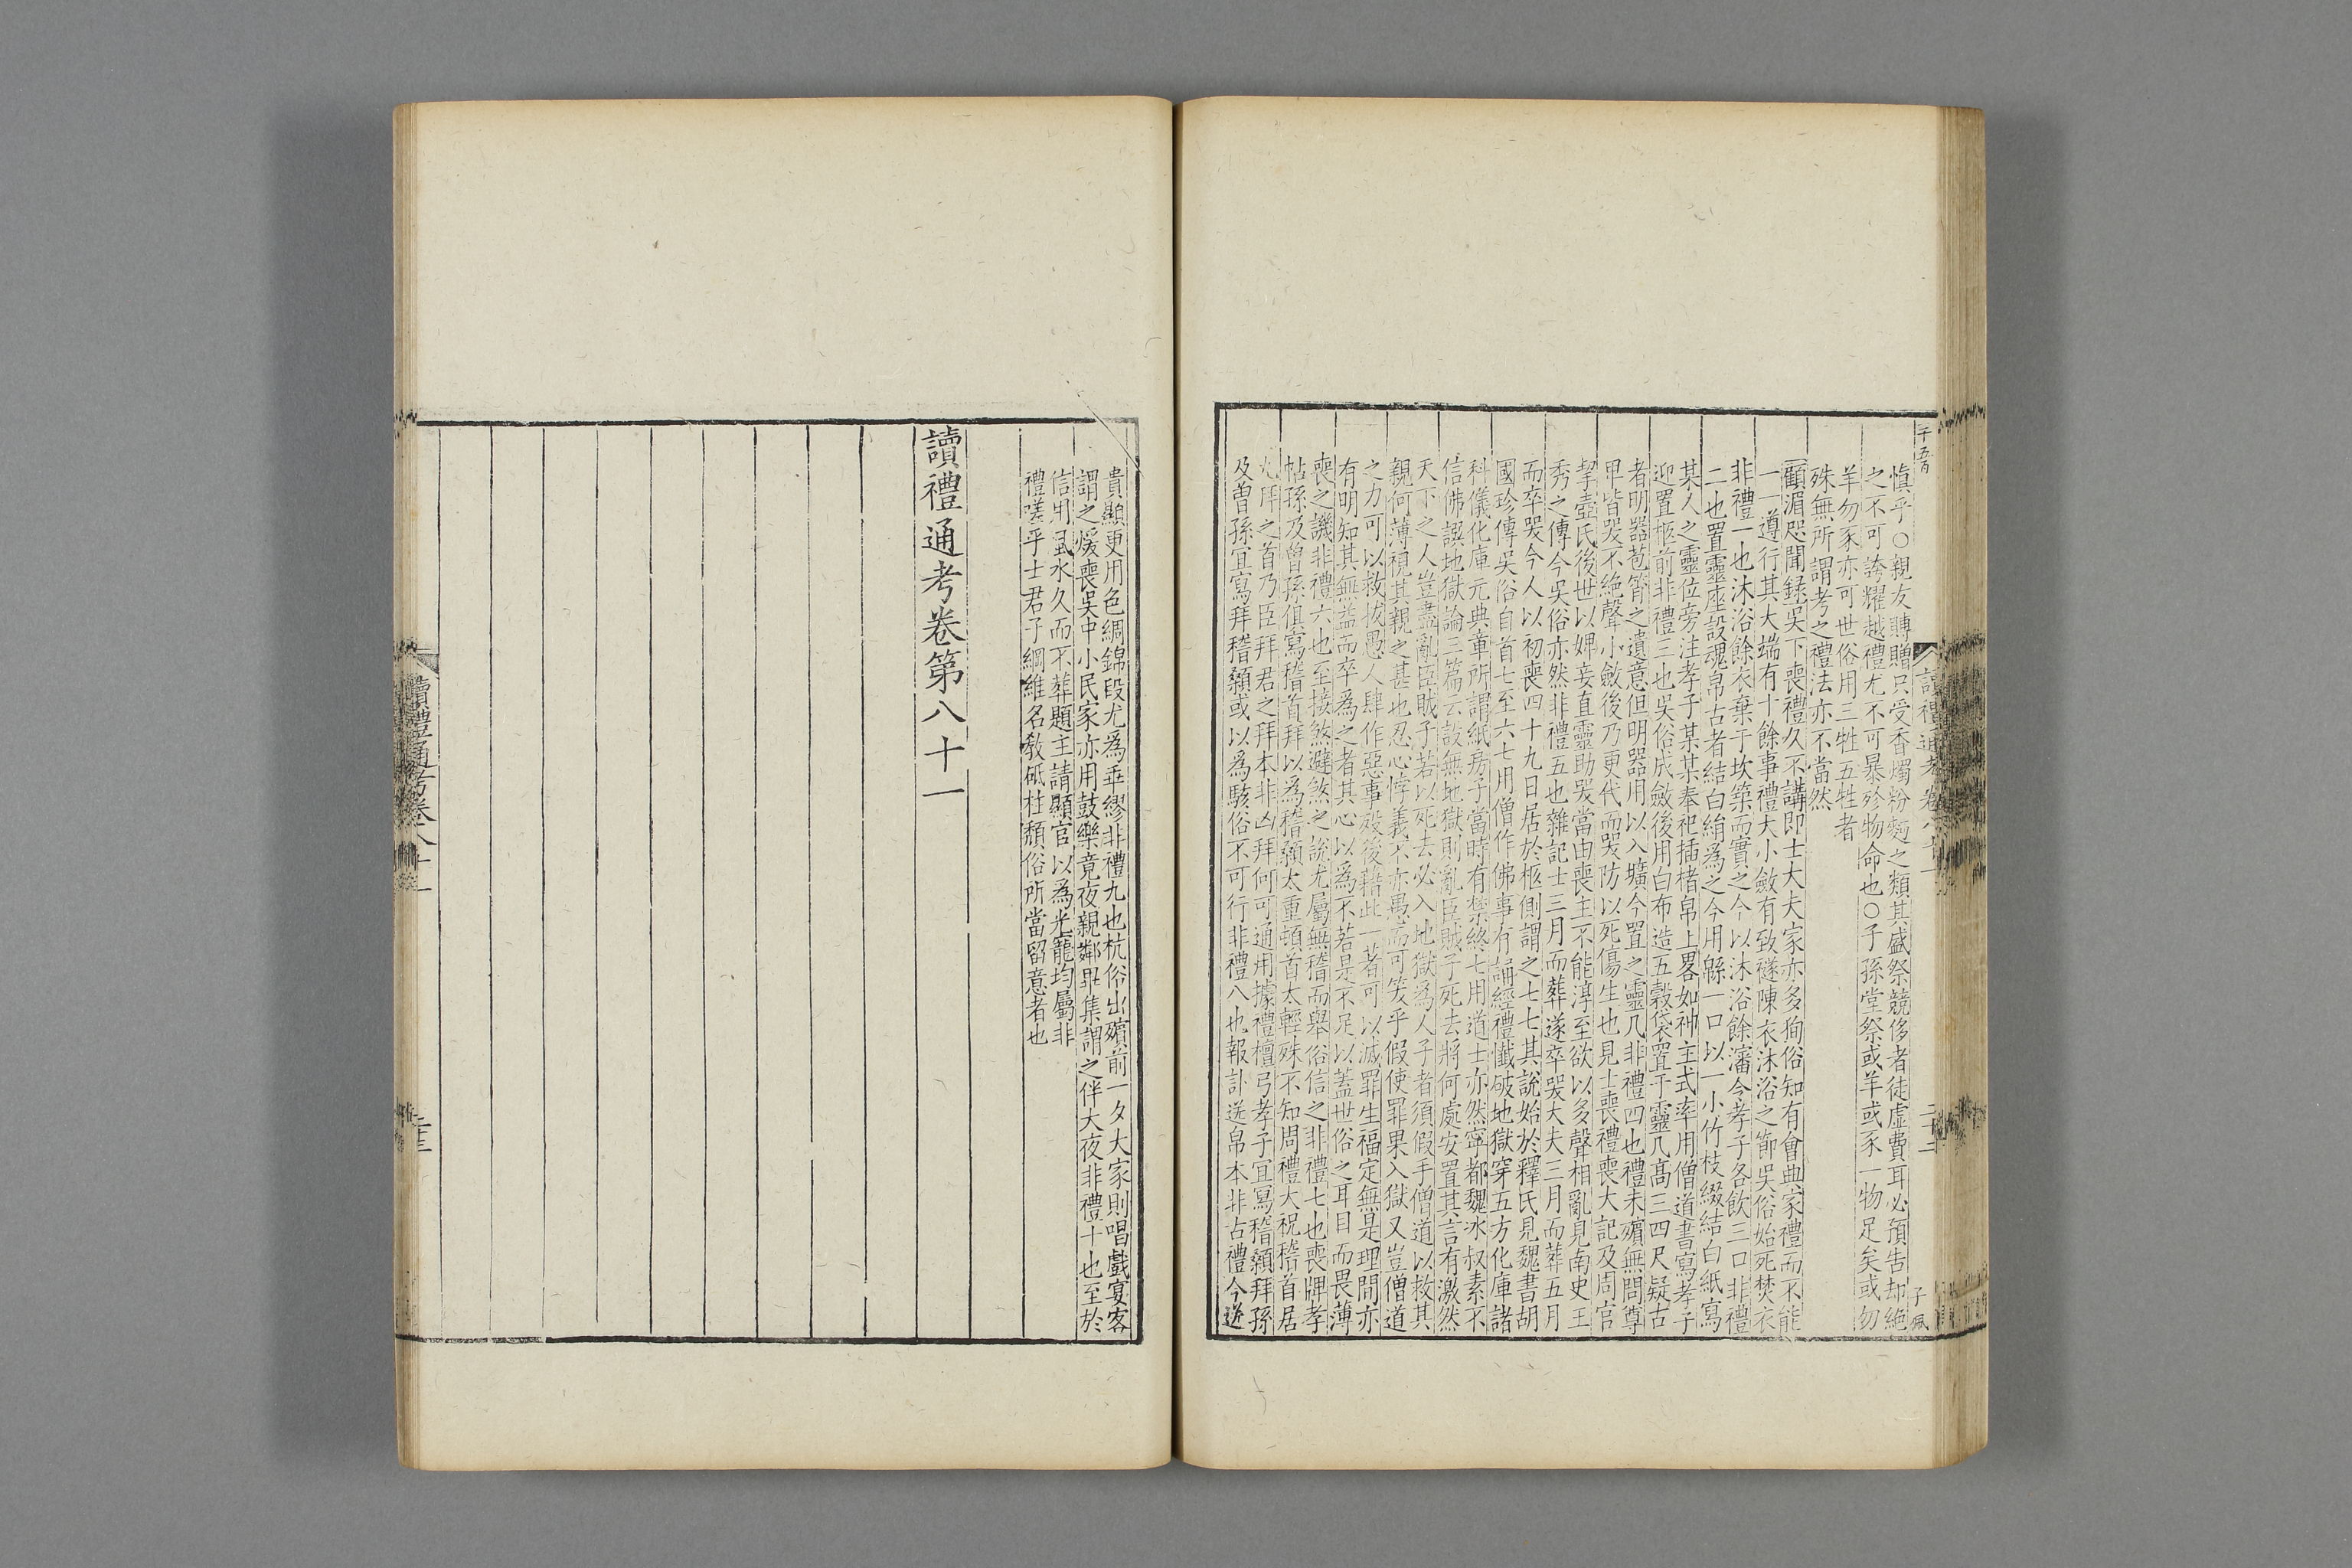 慎乎○親友賻贈只受香燭粉麪之類其盛祭競侈者徒虛費耳必預告却絕
之不可誇耀越禮尤不可暴殄物命也○子孫堂祭或羊或豕一物足矣或勿
羊勿豕亦可世俗用三牲五牲者
殊無所謂考之禮法亦不當然
顧湄咫聞錄吳下喪禮久不講即士大夫家亦多狥俗知有會典家禮而不能
一一遵行其大端有十餘事禮大小斂有致襚陳衣沐浴之節吳俗始死焚衣
非禮一也沐浴餘衣棄于坎築而實之今以沐浴餘瀋令孝子各飲三口非禮
二也置靈座設魂帛古者結白絹爲之今用緜一口以一小竹枝綴結白紙寫
某人之靈位旁注孝子某某奉祀插楮帛上畧如神主式率用僧道書寫孝子
迎置柩前非禮三也吳俗成斂後用白布造五穀袋置于靈几高三四尺疑古
者明器苞筲之遺意但明器用以入壙今置之靈几非禮四也禮未殯無問尊
卑皆哭不絕聲小斂後乃更代而哭防以死傷生也見士喪禮喪大記及周官
挈壺氏後世以婢妾直靈助哭當由喪主不能淳至欲以多聲相亂見南史王
秀之傳今吳俗亦然非禮五也雜記士三月而葬遂卒哭大夫三月而葬五月
而卒哭今人以初喪四十九日居於柩側謂之七七其說始於釋氏見魏書胡
國珍傳吳俗自首七至六七用僧作佛事有誦經禮懺破地獄穿五方化庫諸
科儀化庫元典章所謂紙房子當時有禁終七用道士亦然寧都魏冰叔素不
信佛譔地獄論三篇云設無地獄則亂臣賊子死去將何處安置其言有激然
天下之人豈盡亂臣賊子若以死去必入地獄爲人子者須假手僧道以救其
親何薄視其親之甚也忍心悖義不亦愚而可笑乎假使罪果入獄又豈僧道
之力可以救拔愚人肆作惡事殁後藉此一著可以滅罪生福定無是理間亦
有明知其無益而卒爲之者其心以爲不若是不足以蓋世俗之耳目而畏薄
喪之譏非禮六也至接煞避煞之說尤屬無稽而舉俗信之非禮七也喪牌孝
帖孫及曾孫俱寫稽首拜以爲稽顙太重頓首太輕殊不知周禮大祝稽首居
九拜之首乃臣拜君之拜本非凶拜何可通用據禮檀弓孝子宜寫稽顙拜孫
及曾孫宜寫拜稽顙或以爲駭俗不可行非禮八也報訃送帛本非古禮今遂
貴顯更用色綢錦段尤爲乖繆非禮九也杭俗出殯前一夕大家則唱戲宴客
謂之煖喪吳中小民家亦用鼓樂竟夜親鄰畢集謂之伴大夜非禮十也至於
信用風水久而不葬題主請顯官以爲光寵均屬非
禮嗟乎士君子綱維名教砥柱頽俗所當留意者也
讀禮通考卷第八十一
讀禮通考卷八十一
二十三